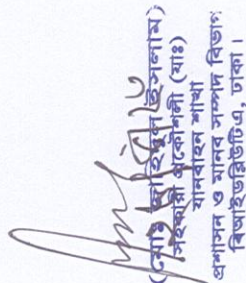 (মোঃ ইসলাম)
সহকারী প্রকৌশলী (যাঃ)
যানবাহন শাখা
প্রশাসন ও মানব সম্পদ বিভাগ
বিআইডব্লিউটিএ, ঢাকা।